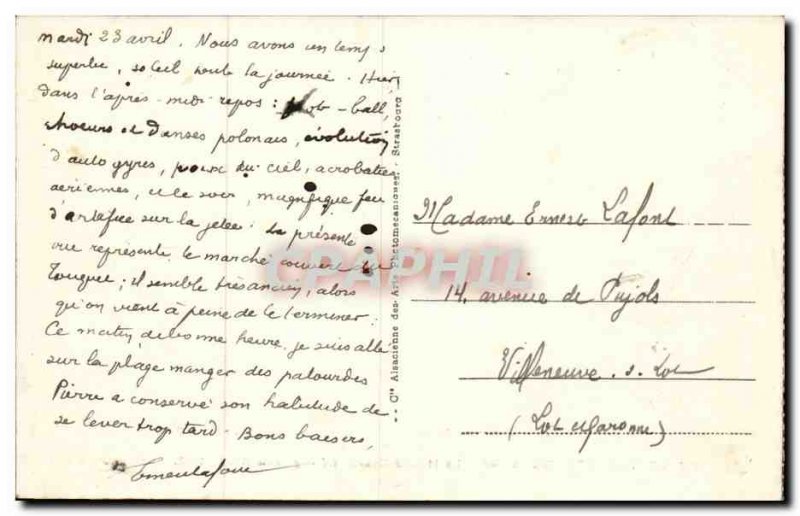 Mardi 23 avril. Nous avons un temps
superbe, soleil toute la journée. Hier
dans l'après-midi repos : -ball,
choeurs et Danses polonais, évolution
d'autogyres, du ciel, acrobaties
aériennes, et le soir, magnifique feu
d'artifice sur la jetée. La présente
vue représente le marché couvert du
Touquet ; il semble très ancien, alors
qu'on vient à peine de le terminer.
Ce matin de bonne heure, je suis allé
sur la plage manger des palourdes
Pierre a conservé son habitude de
se lever trop tard. Bons baisers,
Cie Alsacienne des Arts Photomécaniques. Strasbourg
Madame Ernest Lafont
14, avenue de Pujols
Villeneuve. s. Lot
(Lot et Garonne)
CPAPHIL